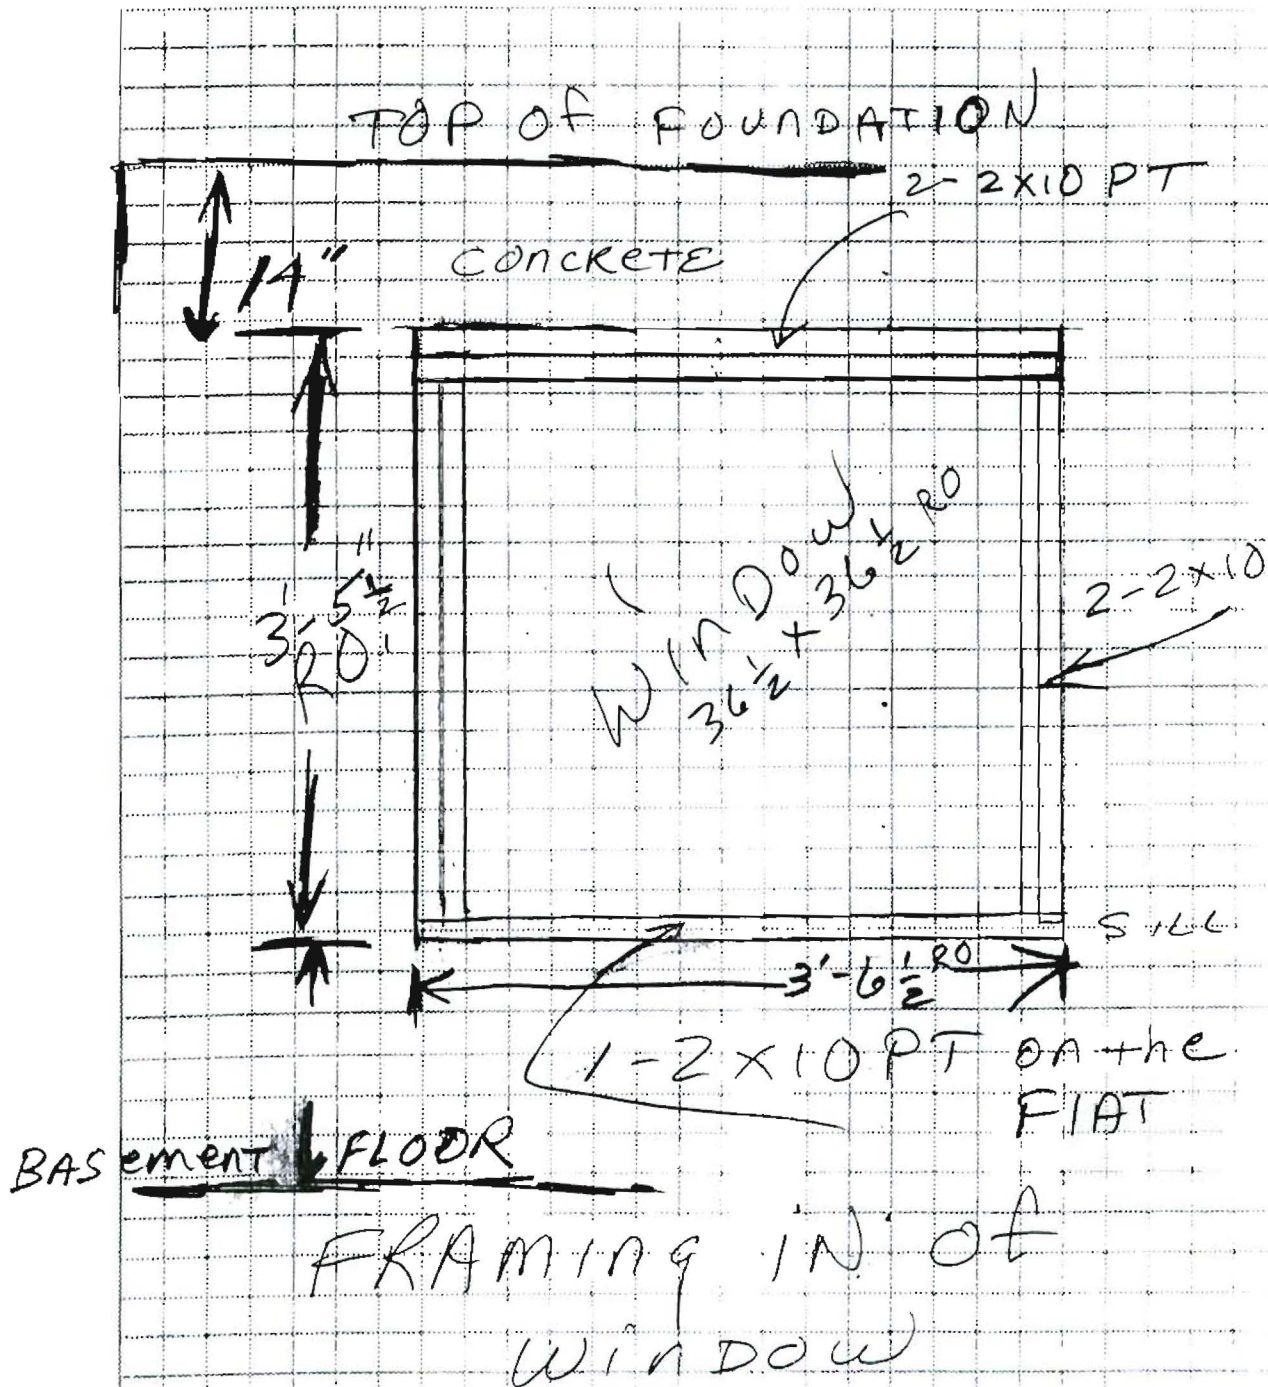 TOP Of FOUNDATION
2-2x10 PT
CONCRETE
14"
3'-5 1/2"
RO
WINDOW
36 1/2 x 36 1/2 RO
2-2x10
SILL
3'-6 1/2 RO
1-2x10 PT on the
FlAT
BASement FLOOR
FRAMING IN Of
WINDOW